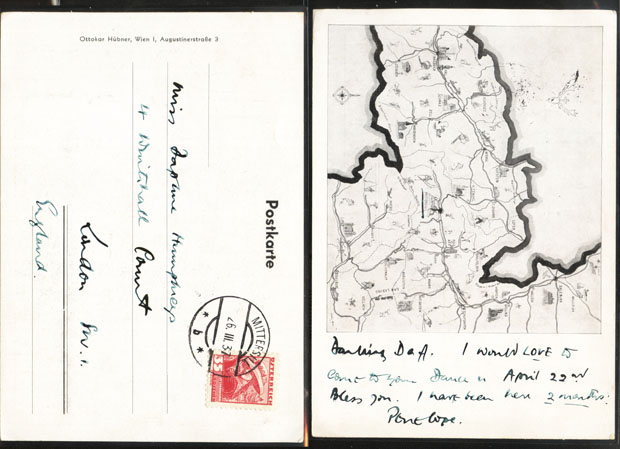 Ottokar Hübner, Wien I, Augustinerstraße 3
Postkarte
Miss Daphne Humphreys
4 Whitehall Court
London S.W.1.
England.
MITTERS
26.III.37
* b *
ÖSTERREICH
35
Darling Daff. I would LOVE to
come to your Dance on April 22nd
Bless you. I have been here 2 months.
Penelope.